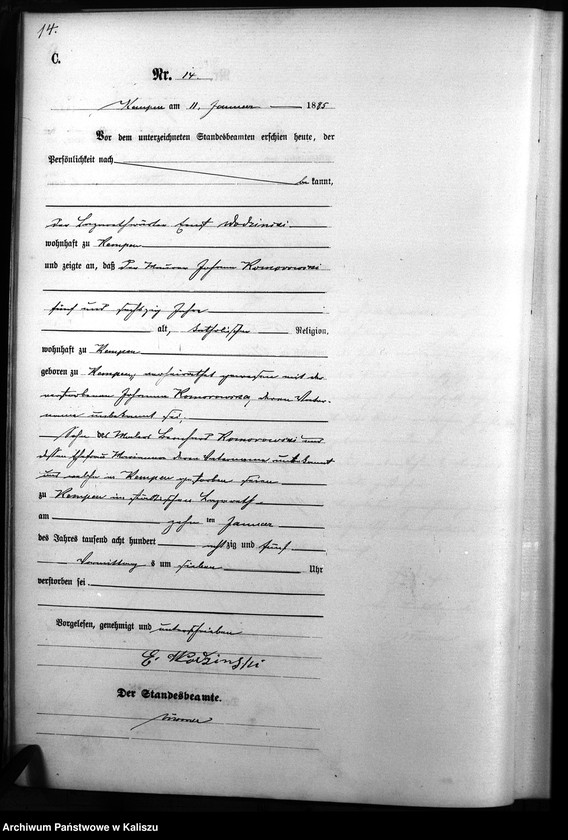 14.
C.
Nr. 14
Kempen am 11. Januar 1885
Vor dem unterzeichneten Standesbeamten erschien heute, der
Persönlichkeit nach
be kannt,
der Lazarethwärter Ernst Wodzinski
wohnhaft zu Kempen
und zeigte an, daß der Maurer Johann Komorowski
fünf und sechszig Jahr
alt, katholischer Religion,
wohnhaft zu Kempen
geboren zu Kempen, verheirathet gewesen mit der
verstorbenen Johanna Komorowska, deren Vater-
name unbekannt sei,
Sohn des Komorowski und
dessen Ehefrau Marianna deren Vatername unbekannt
und welche in Kempen gestorben seien
zu Kempen im städtischen Lazareth
am zehn ten Januar
des Jahres tausend acht hundert achtzig und fünf
Vormittags um sieben Uhr
verstorben sei.
Vorgelesen, genehmigt und unterschrieben
E. Wodzinski
Der Standesbeamte.
Archiwum Państwowe w Kaliszu